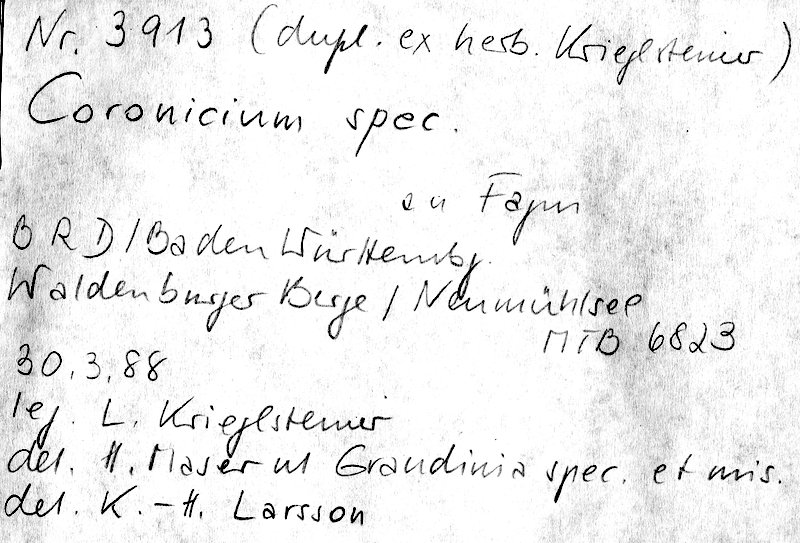 Nr. 3913 (dupl. ex herb. Krieglsteiner)
Coronicium spec.
an Fagus
BRD/Baden Württembg.
Waldenburger Berge / Neumühlsee
MTB 6823
30.3.88
leg. L. Krieglsteiner
det. H. Maser ut Grandinia spec. et mis.
det. K.-H. Larsson